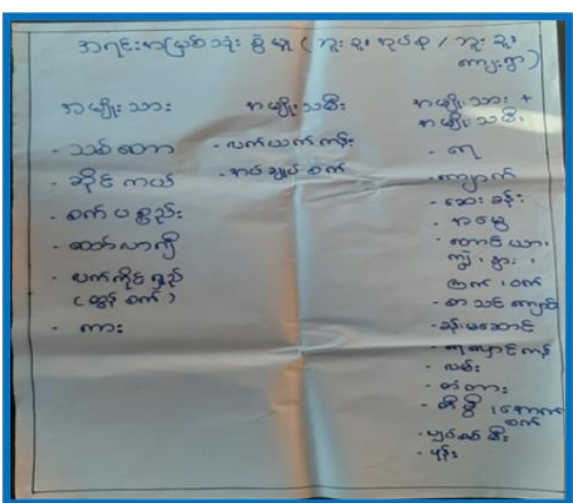 အရင်းအမြစ်သုံးစွဲမှု (ဘူးခူးအုပ်စု / ဘူးခူး
ကျေးရွာ)
အမျိုးသား
- သစ်တော
- ဆိုင်ကယ်
- စက်ပစ္စည်း
- ထော်လာဂျီ
- လက်ကိုင်
(ထွန်စက်)
- ကား
အမျိုးသမီး
- လက်ယက်ကန်း
- အပ်ချုပ်စက်
အမျိုးသား +
အမျိုးသမီး
- ရေ
- ကျောက်
- ဆေးခန်း
- အမွေ
- တောင်ယာ၊
ကျွဲ၊ နွား၊
ကြက်၊ ဝက်
- စာသင်ကျောင်
- ခန်းမဆောင်
- ရေလှောင်ကန်
- လမ်း
- တံတား
- တီဗွီ၊ အောက်
စက်
- လျှပ်စစ်မီး
- ဖုန်း